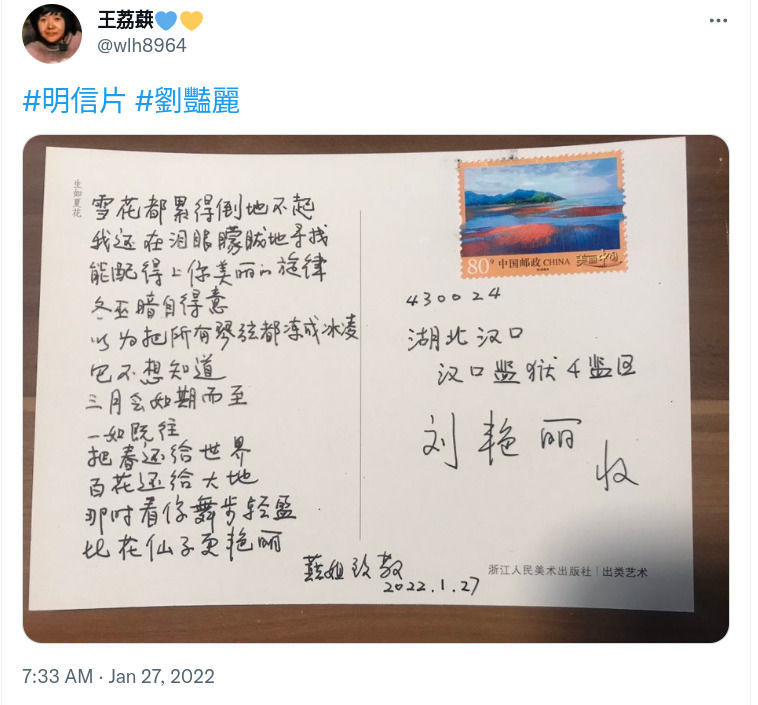 王荔蕻💙💛
@wlh8964
#明信片 #劉豔麗
生如夏花
雪花都累得倒地不起
我还在泪眼朦胧地寻找
能配得上你美丽的旋律
冬至暗自得意
以为把所有琴弦都冻成冰凌
它不想知道
三月会如期而至
一如既往
把春还给世界
百花还给大地
那时看你舞步轻盈
比花仙子更艳丽
蕻姐致敬
2022.1.27
80分 中国邮政 CHINA 美丽中国
430024
湖北汉口
汉口监狱4监区
刘艳丽
收
浙江人民美术出版社 | 出类艺术
7:33 AM · Jan 27, 2022